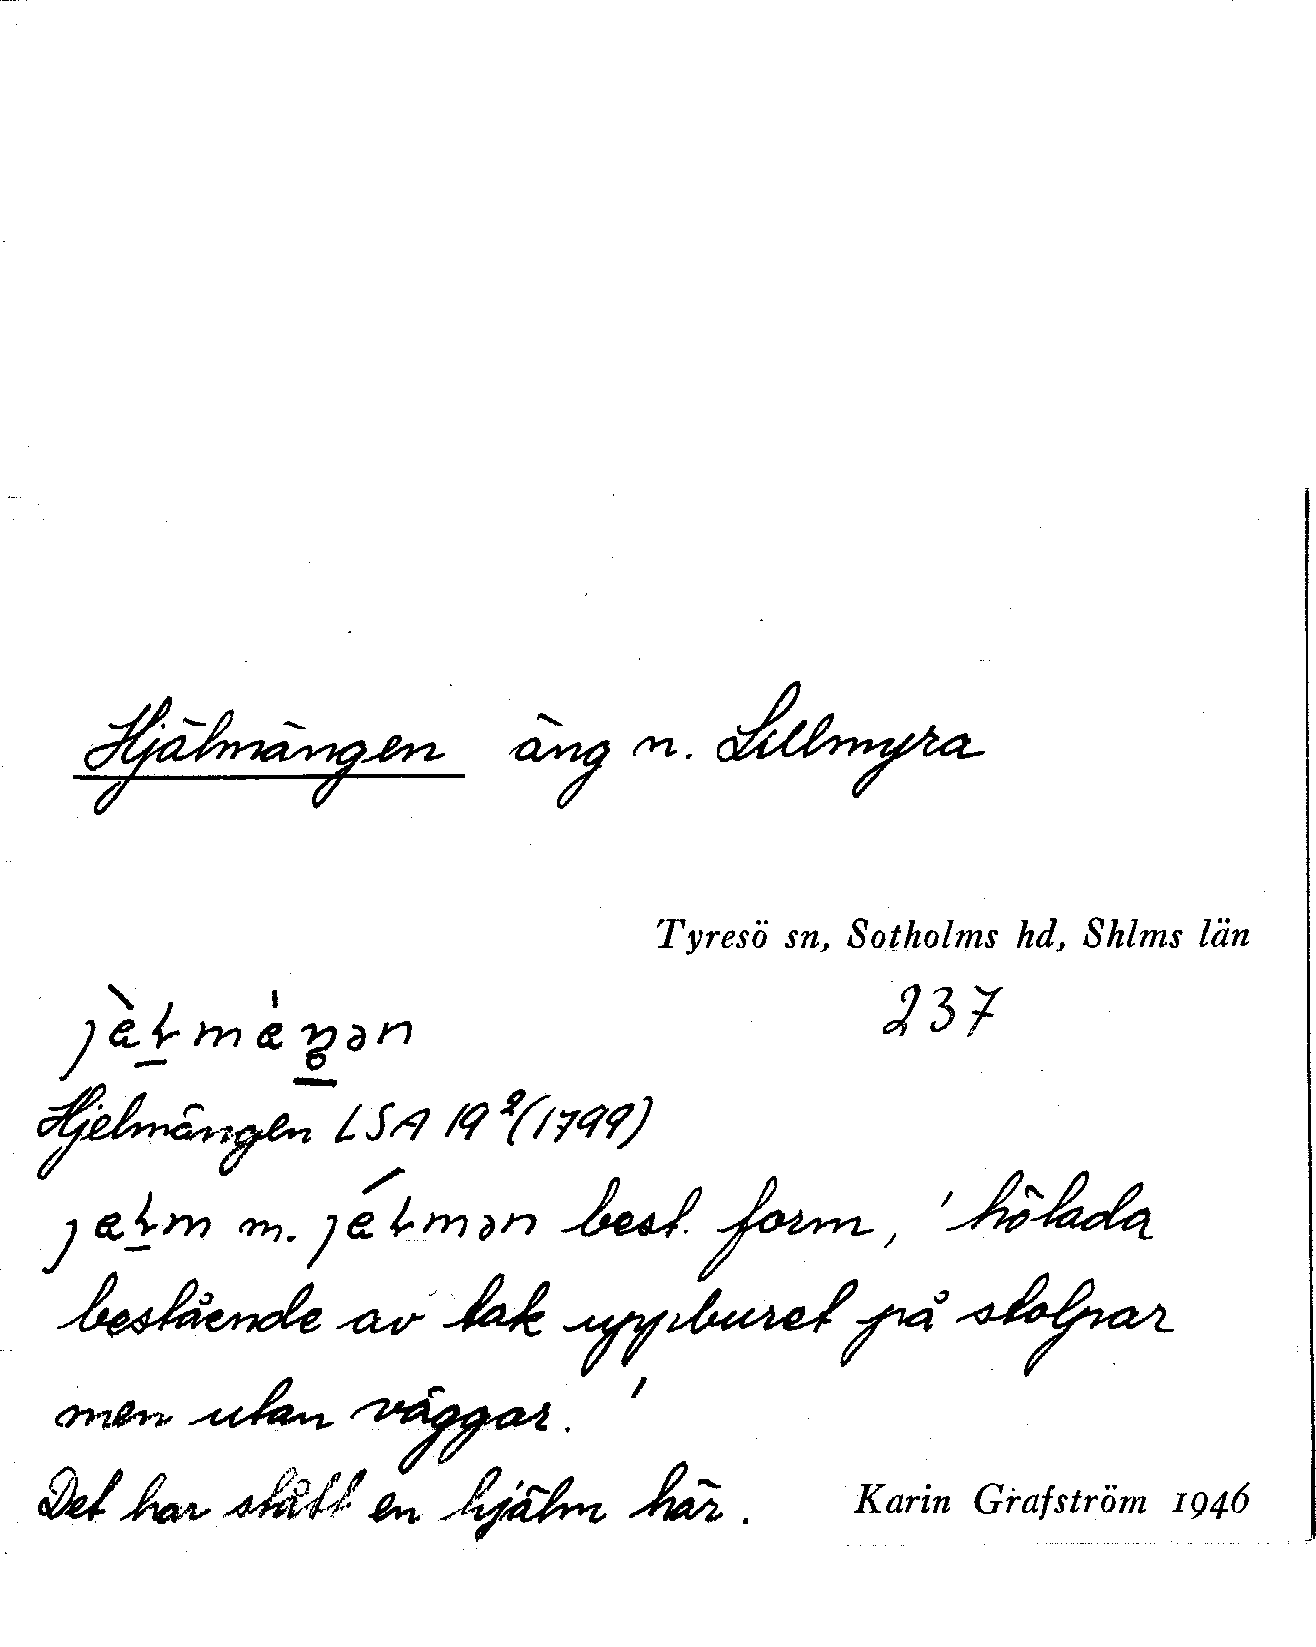 Hjälmängen äng n. Lillmyra
Tyresö sn, Sotholms hd, Shlms län
237
Hjelmängen LSA 19²(1799)
best. form, 'hölada
bestående av tak uppburet på stolpar
men utan väggar.'
Det har stått en hjälm här.
Karin Grafström 1946